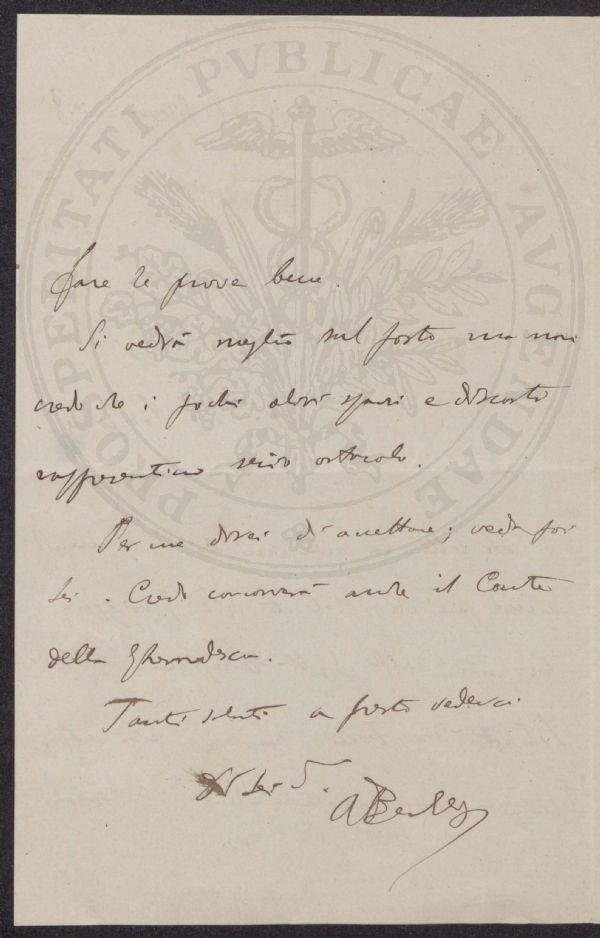 PROSPERITATI PVBLICAE AVGENDAE
fare le prove bene.
Si vedrà meglio sul posto ma non
credo che i pochi olivi sparsi e discosti
rappresentino serio ostacolo.
Per me direi di accettare; veda poi
Lei. Credo concorrerà anche il Conte
della Gherardesca.
Tanti saluti a presto vederci.
Di Lei